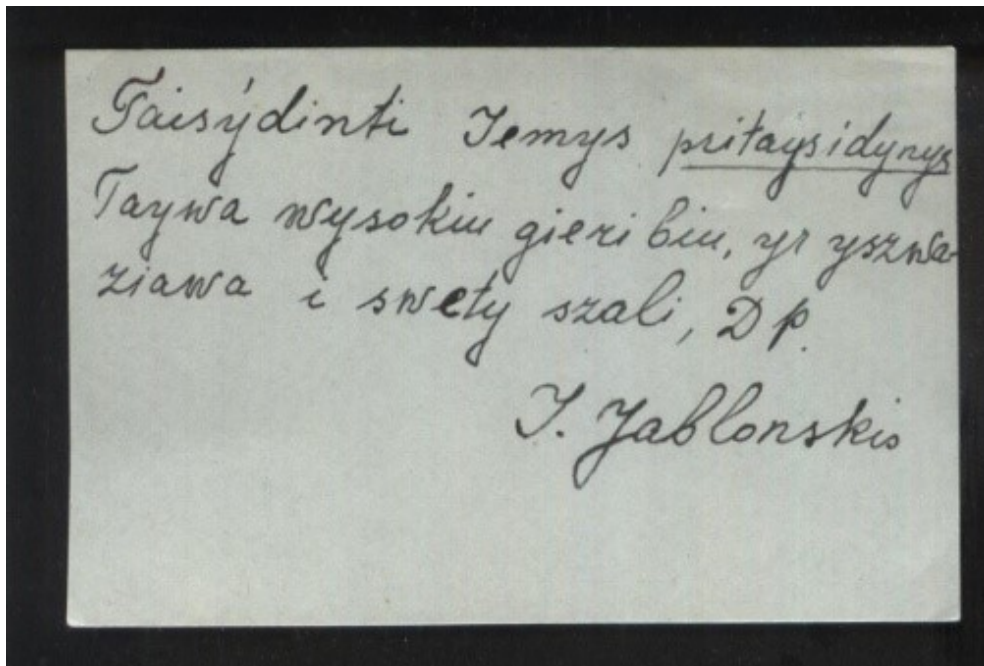 Taisýdinti Jemys pritaysidynys
Taywa wysokiu gieribiu, yr yszwa-
ziawa i swety szali, Dp.
J. Jablonskis